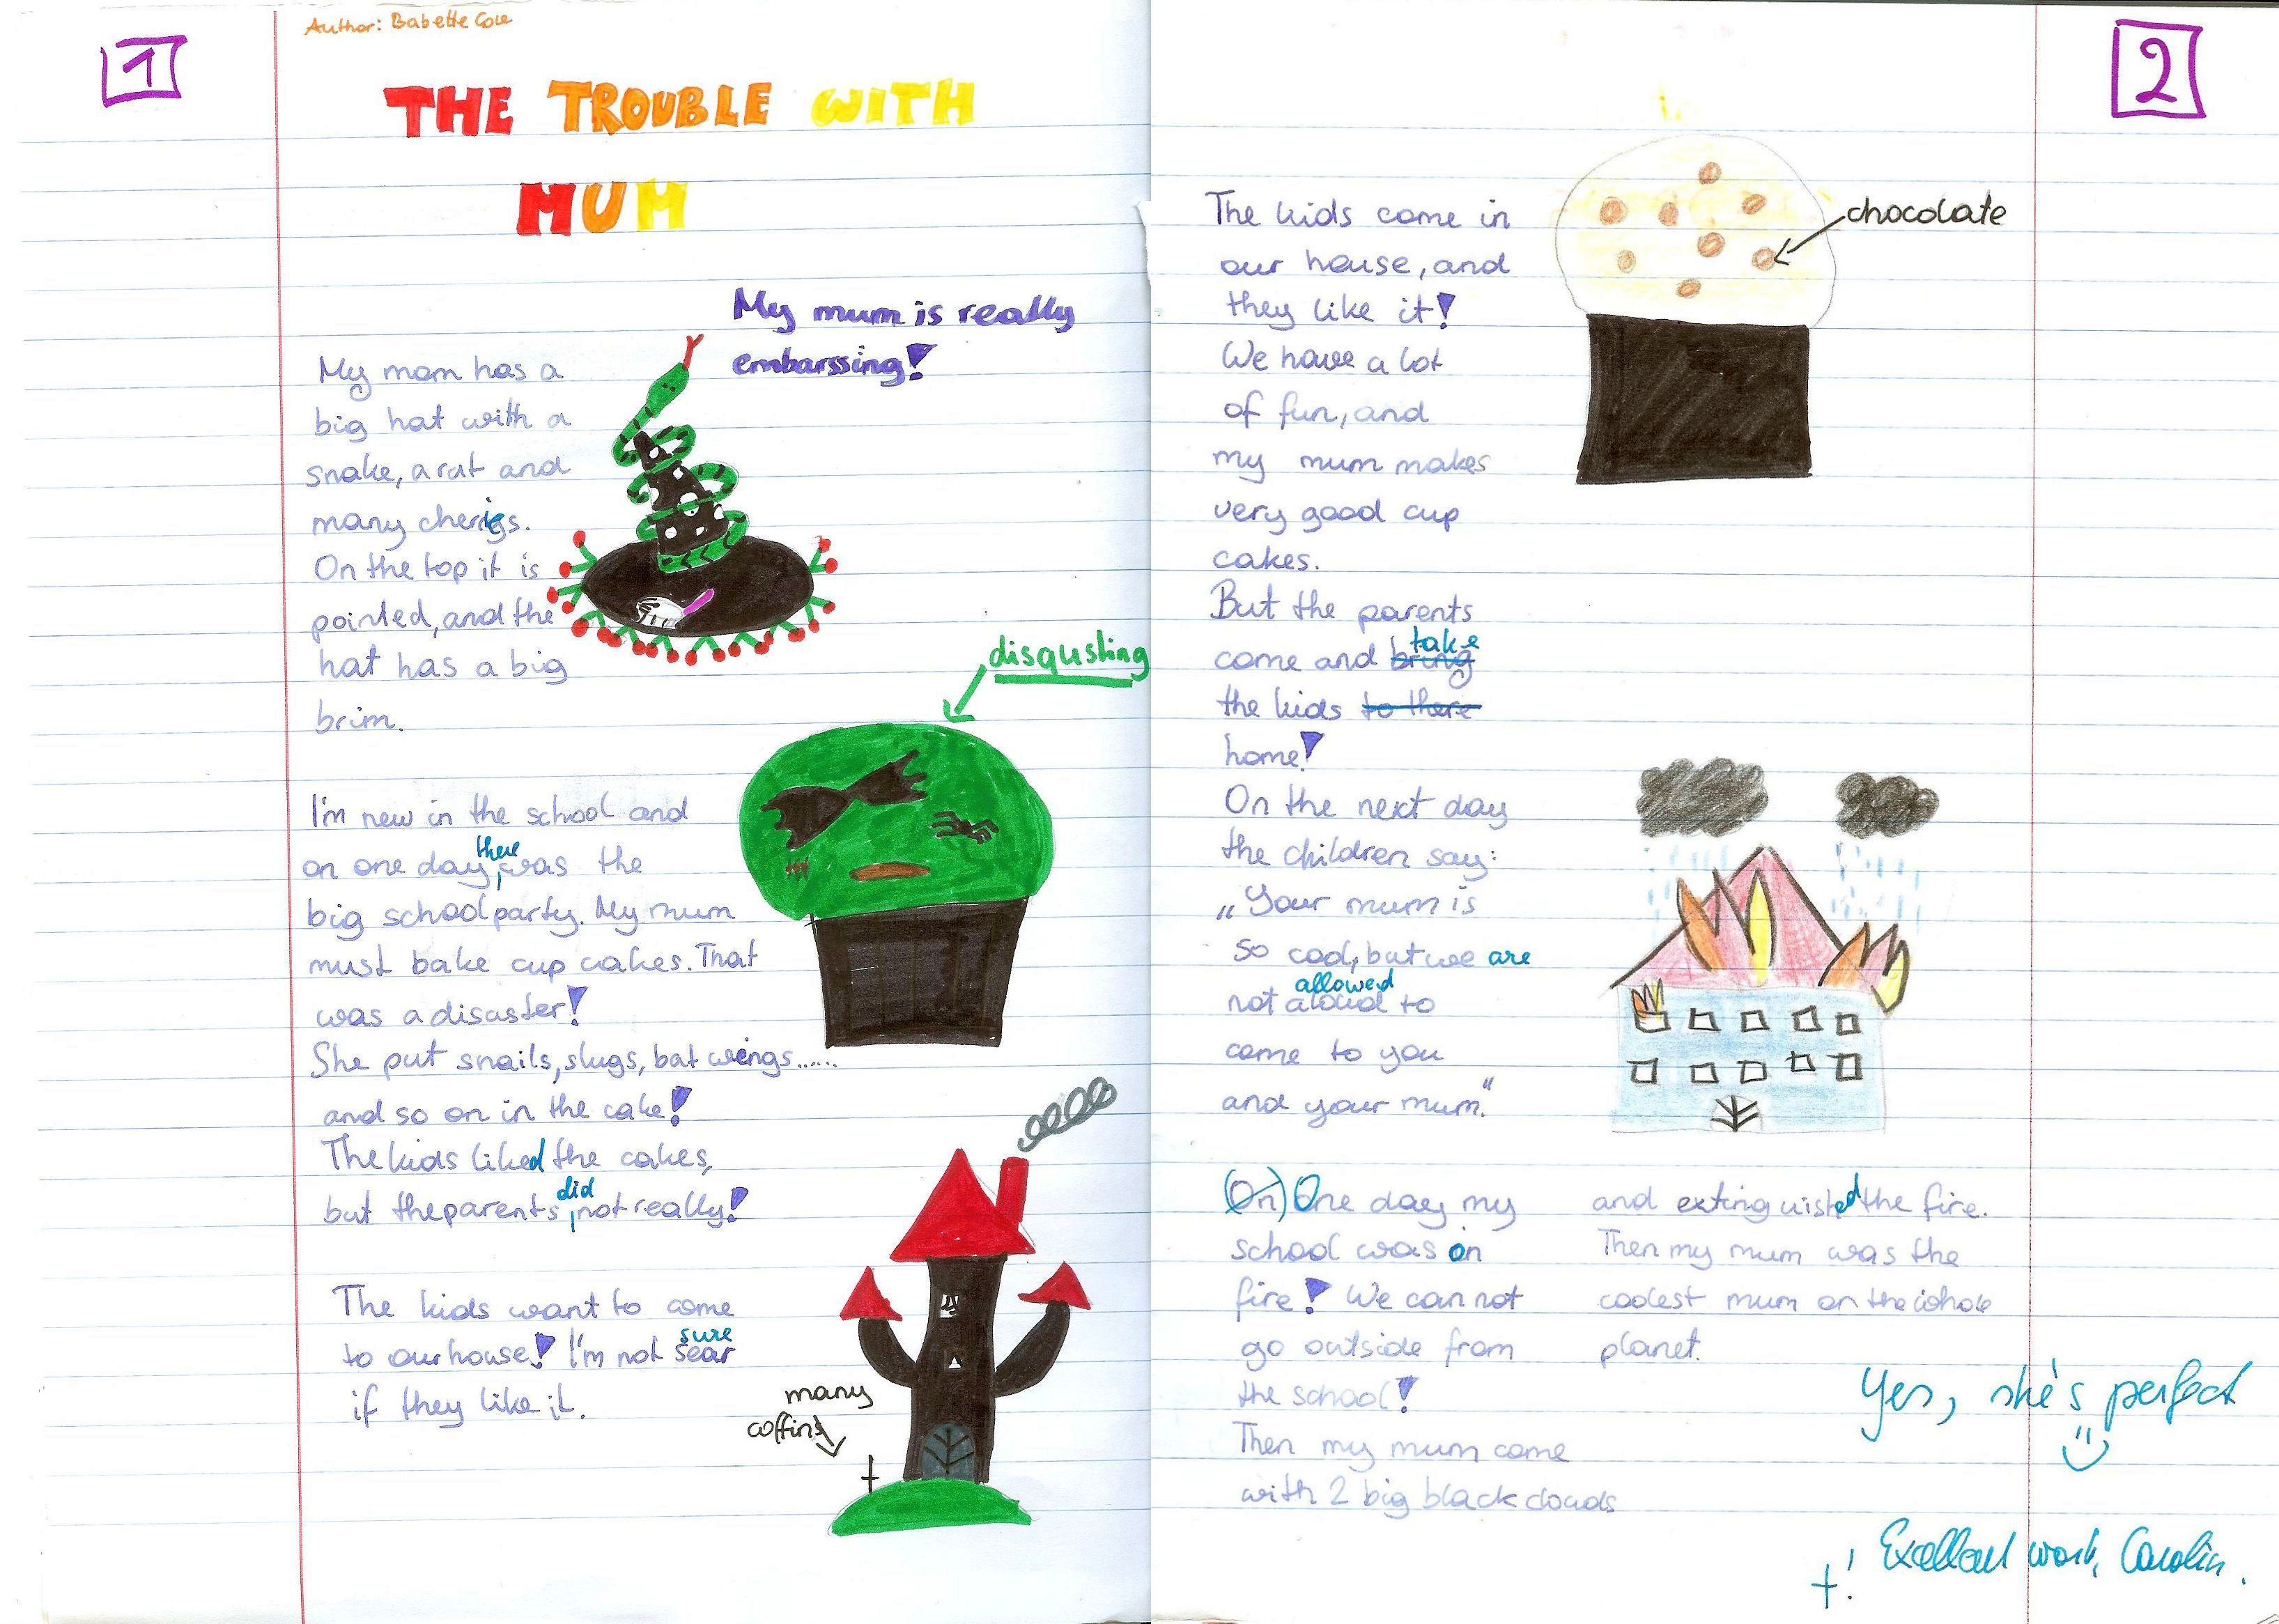 1
Author: Babette Cole
THE TROUBLE WITH
MUM
My mum is really
embarssing!
My mom has a
big hat with a
snake, a rat and
many cherries.
On the top it is
pointed, and the
hat has a big
brim.
disgusting
I'm new in the school and
on one day, there was the
big schoolparty. My mum
must bake cup cakes. That
was a disaster!
She put snails, slugs, bat wings......
and so on in the cake!
The kids liked the cakes,
but the parents did not really!
The kids want to come
to our house! I'm not sear sure
if they like it.
many
coffins
2
The kids come in
our house, and
they like it!
We have a lot
of fun, and
my mum makes
very good cup
cakes.
chocolate
But the parents
come and bring take
the kids to there
home!
On the next day
the children say:
„Your mum is
so cool, but we are
not aloud allowed to
come to you
and your mum."
(On) One day my
school was on
fire! We can not
go outside from
the school!
Then my mum came
with 2 big black clouds
and extinguished the fire.
Then my mum was the
coolest mum on the whole
planet.
Yes, she's perfect
Excellent work, Carolin.
+!